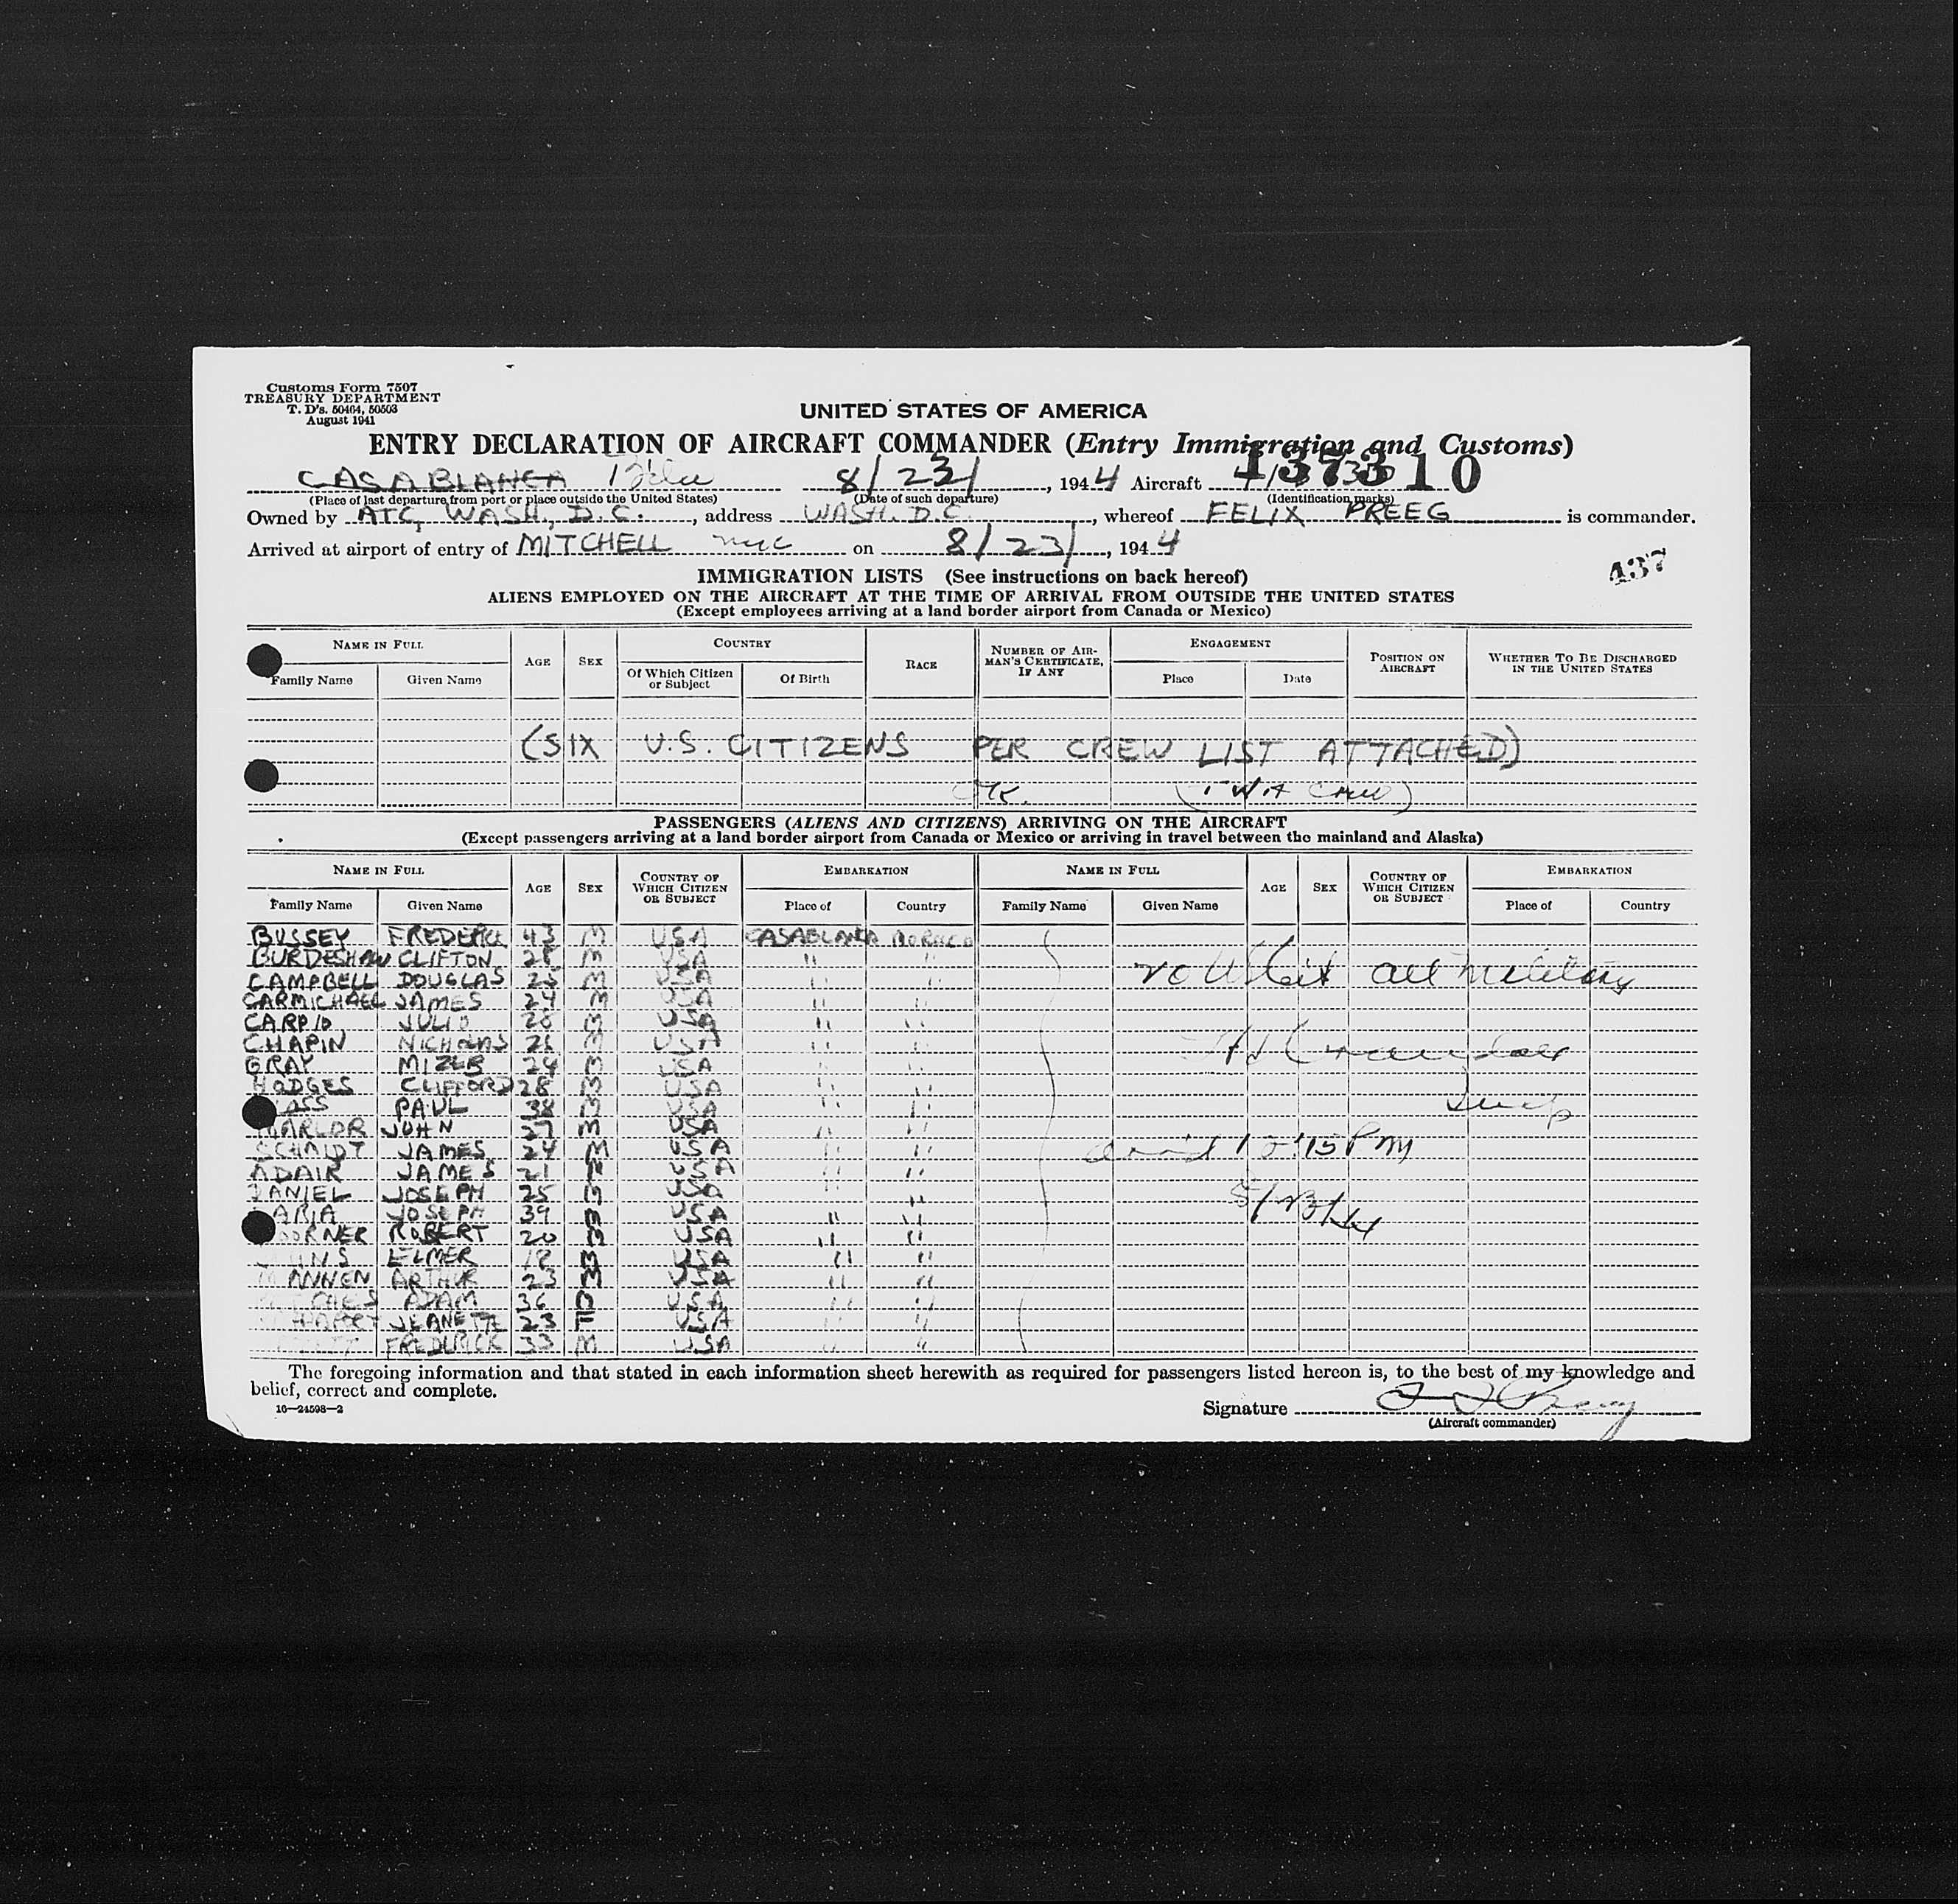 Customs Form 7507
TREASURY DEPARTMENT
T. D's. 50464, 50503
August 1941
UNITED STATES OF AMERICA
ENTRY DECLARATION OF AIRCRAFT COMMANDER (Entry Immigration and Customs)
137310
CASABLANCA 8/23/, 1944 Aircraft
(Place of last departure from port or place outside the United States) (Date of such departure) (Identification marks)
Owned by ATC, WASH., D.C., address WASH. D.C., whereof FELIX PREEG is commander.
Arrived at airport of entry of MITCHELL NYC on 8/23/, 1944
437
IMMIGRATION LISTS (See instructions on back hereof)
ALIENS EMPLOYED ON THE AIRCRAFT AT THE TIME OF ARRIVAL FROM OUTSIDE THE UNITED STATES
(Except employees arriving at a land border airport from Canada or Mexico)
NAME IN FULL AGE SEX COUNTRY RACE NUMBER OF AIRMAN'S CERTIFICATE, IF ANY ENGAGEMENT POSITION ON AIRCRAFT WHETHER TO BE DISCHARGED IN THE UNITED STATES
Family Name Given Name Of Which Citizen or Subject Of Birth Place Date
(SIX U.S. CITIZENS PER CREW LIST ATTACHED)
(TWA Crew)
PASSENGERS (ALIENS AND CITIZENS) ARRIVING ON THE AIRCRAFT
(Except passengers arriving at a land border airport from Canada or Mexico or arriving in travel between the mainland and Alaska)
NAME IN FULL AGE SEX COUNTRY OF WHICH CITIZEN OR SUBJECT EMBARKATION NAME IN FULL AGE SEX COUNTRY OF WHICH CITIZEN OR SUBJECT EMBARKATION
Family Name Given Name Place of Country Family Name Given Name Place of Country
BUSSEY FREDERICK 43 M USA CASABLANCA MOROCCO
BURDESHAW CLIFTON 28 M USA " "
CAMPBELL DOUGLAS 25 M USA " " all military
CARMICHAEL JAMES 24 M USA " "
CARPIO JULIO 28 M USA " "
CHAPIN NICHOLAS M USA " "
GRAY 24 M USA " "
HODGES CLIFFORD 28 M USA " "
PAUL 38 M USA " " Insp
MARLOR JOHN 27 M USA " "
SCHMIDT JAMES 24 M USA " " 12:15 PM
ADAIR JAMES 21 M USA " "
DANIEL JOSEPH 25 M USA " " 8/23/44
JOSEPH 39 M USA " "
ROBERT 20 M USA " "
ELMER 18 M USA " "
MANNEN ARTHUR 23 M USA " "
ADAM 36 M USA " "
JEANETTE 23 F USA " "
FREDERICK 33 M USA " "
The foregoing information and that stated in each information sheet herewith as required for passengers listed hereon is, to the best of my knowledge and
belief, correct and complete.
16—24598—2
Signature
(Aircraft commander)